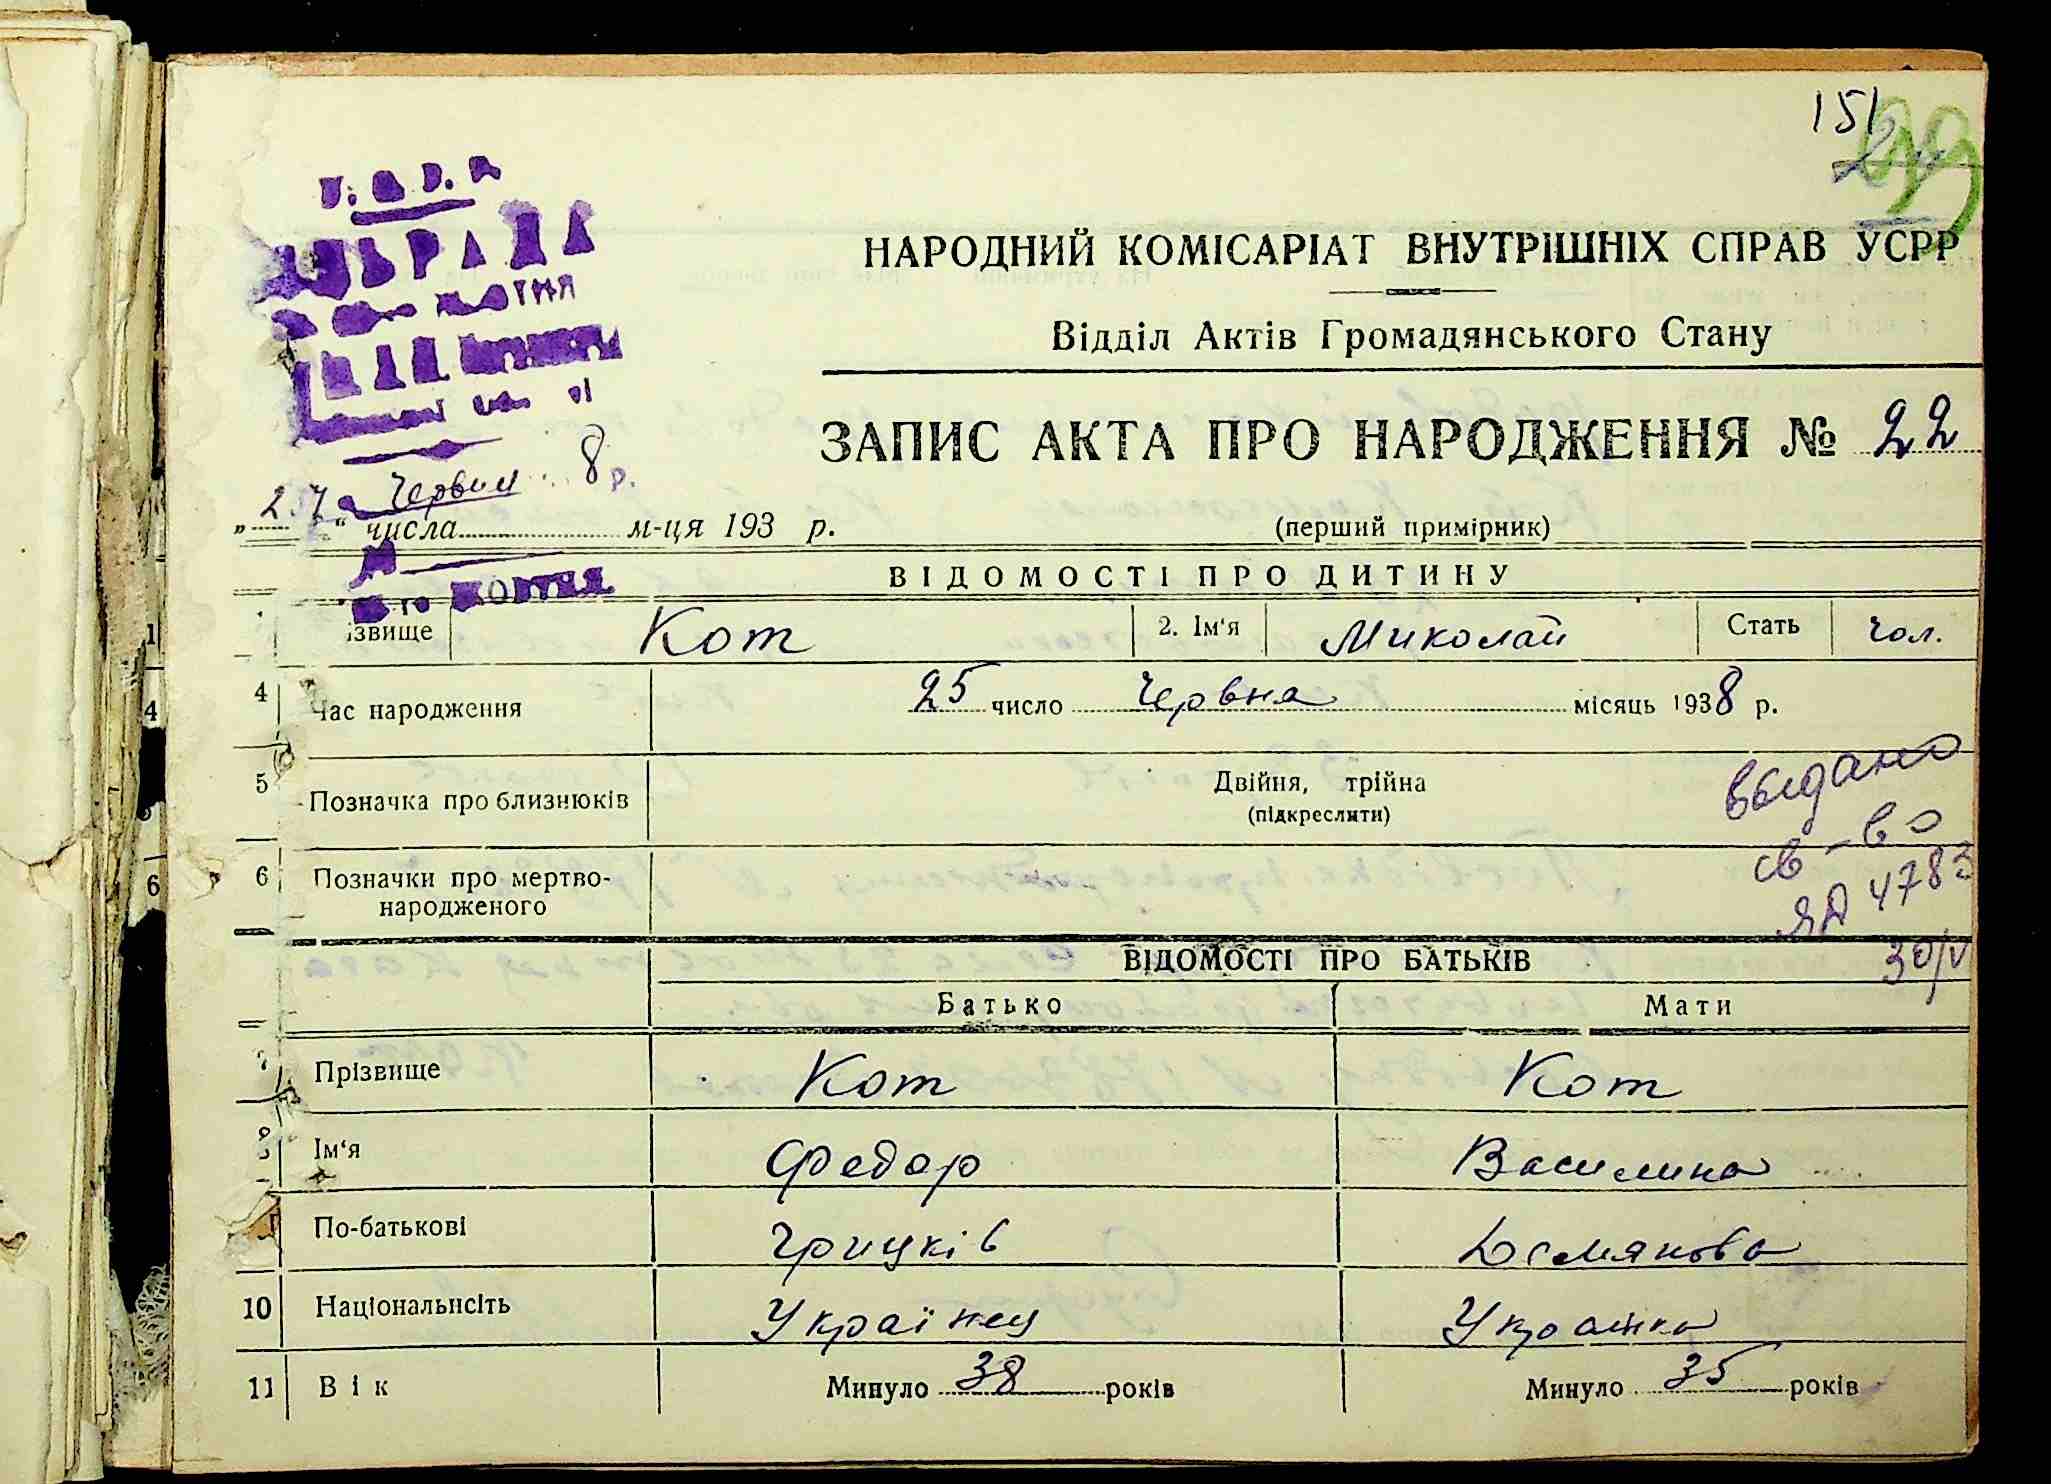 151
99
НАРОДНИЙ КОМІСАРІАТ ВНУТРІШНІХ СПРАВ УСРР
Відділ Актів Громадянського Стану
ЗАПИС АКТА ПРО НАРОДЖЕННЯ № 22
Червня 8 р.
„27“ числа м-ця 193 р.
(перший примірник)
ВІДОМОСТІ ПРО ДИТИНУ
ізвище Кот 2. Ім‘я Миколай Стать чол.
4 Час народження 25 число Червня місяць 1938 р.
5 Позначка про близнюків Двійня, трійна
(підкреслити)
выдано
св-во
ЯА 4783
30/V
6 Позначки про мертво-
народженого
ВІДОМОСТІ ПРО БАТЬКІВ
Батько Мати
7 Прізвище Кот Кот
8 Ім‘я Федор Василина
По-батькові Грицків Демянова
10 Національність Українец Українка
11 Вік Минуло 38 років Минуло 35 років
1
4
6